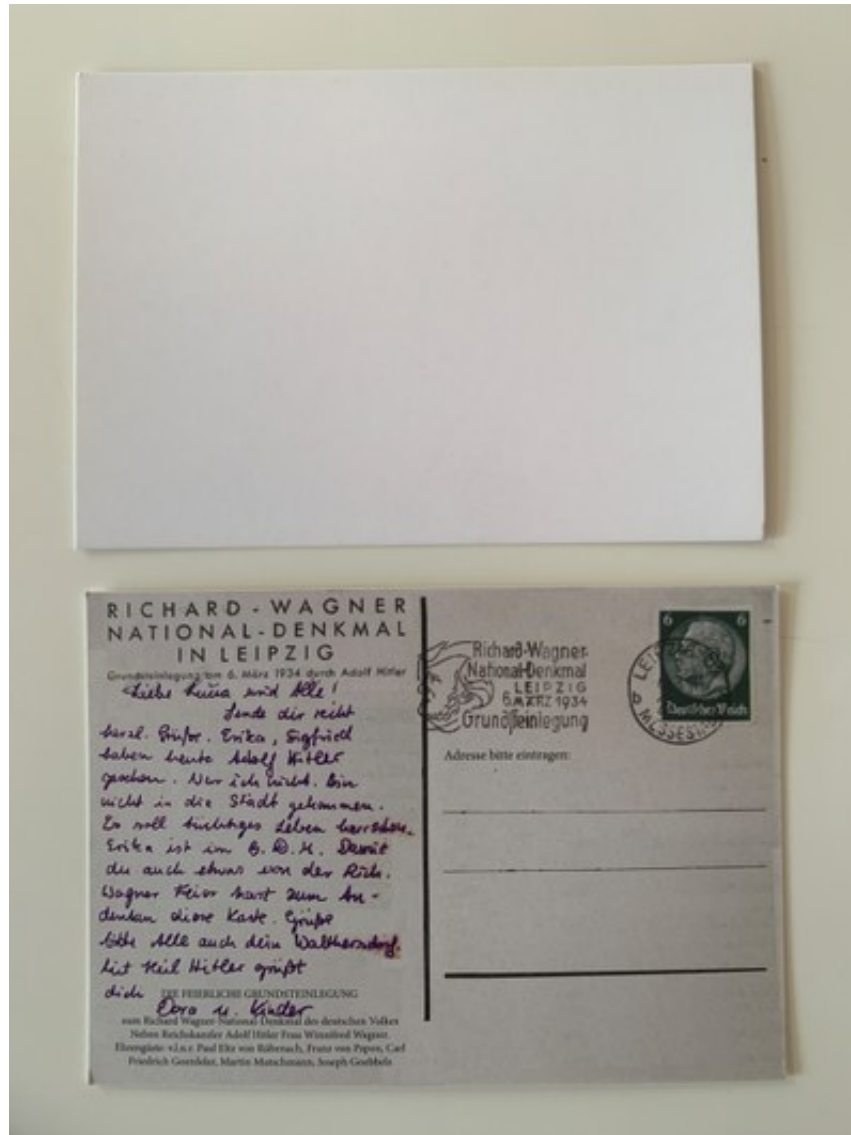 RICHARD-WAGNER
NATIONAL-DENKMAL
IN LEIPZIG
Grundsteinlegung am 6. März 1934 durch Adolf Hitler
Liebe und Alle!
Sende dir recht
herzl. Grüße. Erika, Siegfried
haben heute Adolf Hitler
gesehen. Nur ich nicht. Bin
nicht in die Stadt gekommen.
Es soll tüchtiges Leben herrschen.
Erika ist im B. D. M. Damit
du auch etwas von der Rich.
Wagner Feier hast zum An-
denken diese Karte. Grüße
bitte Alle auch dein
Mit Heil Hitler grüßt
dich
DIE FEIERLICHE GRUNDSTEINLEGUNG
Dora u. Kinder
zum Richard Wagner-National-Denkmal des deutschen Volkes
Neben Reichskanzler Adolf Hitler Frau Winnifred Wagner.
Ehrengäste: v.l.n.r. Paul Eltz von Rübenach, Franz von Papen, Carl
Friedrich Goerdeler, Martin Mutschmann, Joseph Goebbels
Richard-Wagner-
National-Denkmal
LEIPZIG
6. MÄRZ 1934
Grundsteinlegung
6 6
Deutsches Reich
LEIPZIG
b
Adresse bitte eintragen: